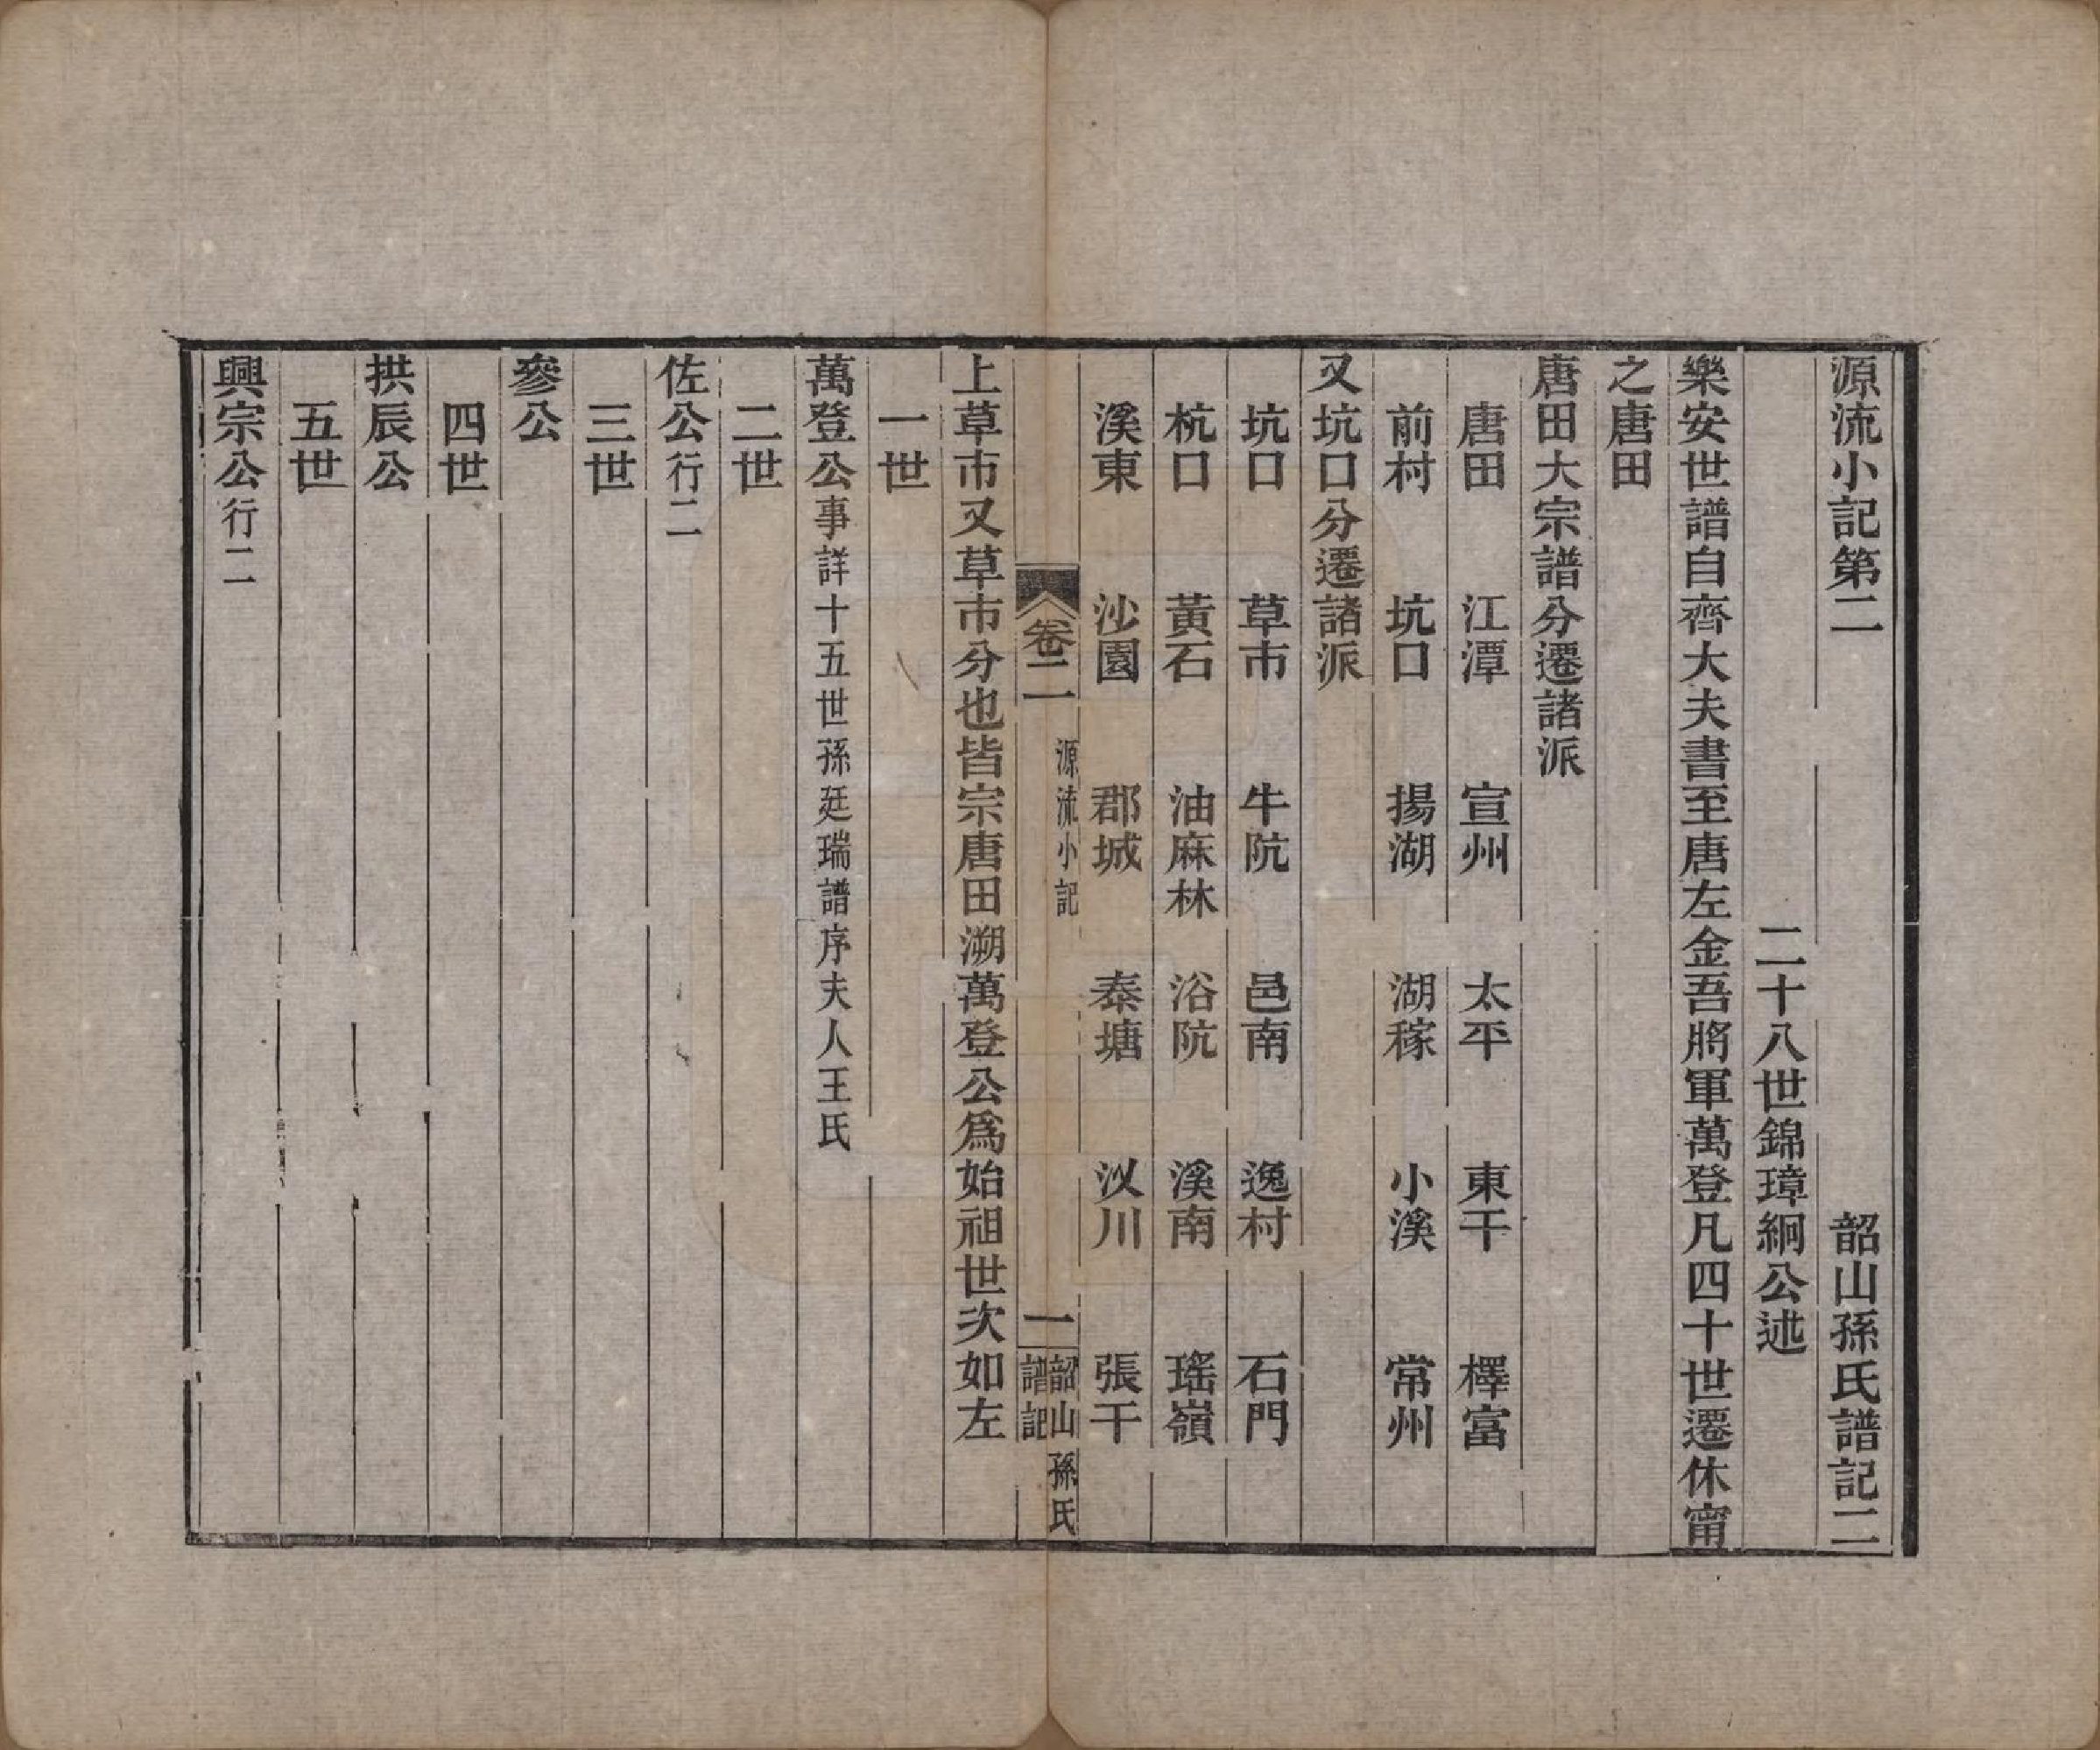 源流小記第二　韶山孫氏譜記二
二十八世錦璋絅公述
樂安世譜自齊大夫書至唐左金吾將軍萬登凡四十世遷休甯
之唐田
唐田大宗譜分遷諸派
唐田　江潭　宣州　太平　東干　檡富
前村　坑口　揚湖　湖稼　小溪　常州
又坑口分遷諸派
坑口　草市　牛阬　邑南　逸村　石門
杭口　黃石　油麻林　浴阬　溪南　瑤嶺
溪東　沙園　郡城　泰塘　汊川　張干
卷二　源流小記　一　韶山孫氏譜記
上草市又草市分也皆宗唐田溯萬登公爲始祖世次如左
一世
萬登公事詳十五世孫廷瑞譜序夫人王氏
二世
佐公行二
三世
參公
四世
拱辰公
五世
興宗公行二